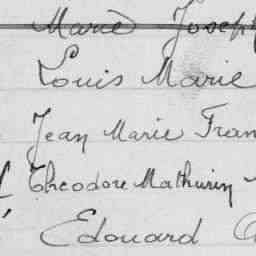 Marie Joseph
Louis Marie
Jean Marie Fran
Théodore Mathurin
Edouard